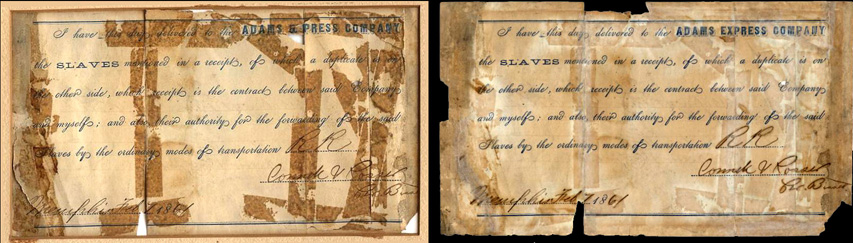 I have this day delivered to the ADAMS E PRESS COMPANY
the SLAVES mentioned in a receipt, of which a duplicate is on
the other side, which receipt is the contract between said Company
and myself; and also their authority for the forwarding of the said
Slaves by the ordinary modes of transportation R R
Memphis Feb 7 1861
I have this day delivered to the ADAMS EXPRESS COMPANY
the SLAVES mentioned in a receipt, of which a duplicate is on
the other side, which receipt is the contract between said Company
and myself; and also their authority for the forwarding of the said
Slaves by the ordinary modes of transportation R R
Memphis Feb 7 1861